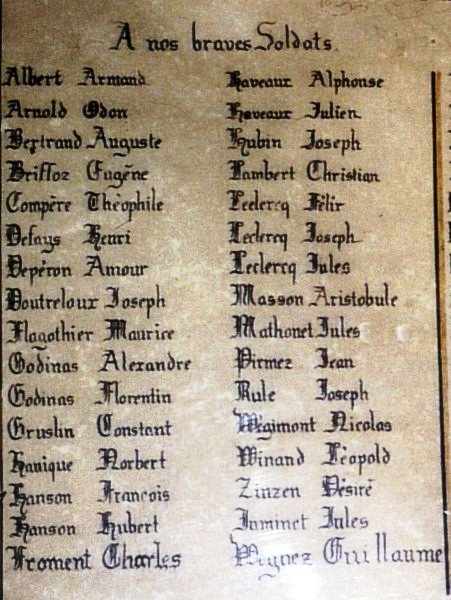 A nos braves Soldats.
Albert Armand
Arnold Odon
Bertrand Auguste
Briffoz Eugène
Compère Théophile
Defays Henri
Depéron Amour
Doutreloux Joseph
Flagothier Maurice
Godinas Alexandre
Godinas Florentin
Gruslin Constant
Hanique Norbert
Hanson Francois
Hanson Hubert
Froment Charles
Haveaux Alphonse
Haveaux Julien
Hubin Joseph
Lambert Christian
Leclercq Félix
Leclercq Joseph
Leclercq Jules
Masson Aristobule
Mathonet Jules
Pirmez Jean
Rule Joseph
Wégimont Nicolas
Winand Léopold
Zinzen Désiré
Jules
Guillaume